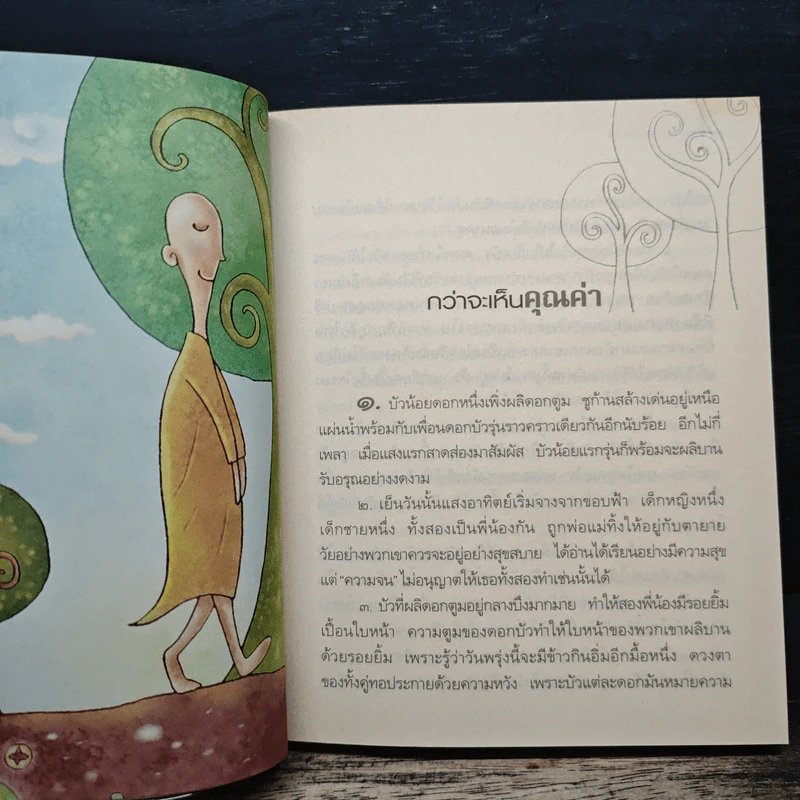 กว่าจะเห็นคุณค่า
๑. บัวน้อยดอกหนึ่งเพิ่งผลิดอกตูม ชูก้านสล้างเด่นอยู่เหนือ
แผ่นน้ำพร้อมกับเพื่อนดอกบัวรุ่นราวคราวเดียวกันอีกนับร้อย อีกไม่กี่
เพลา เมื่อแสงแรกสาดส่องมาสัมผัส บัวน้อยแรกรุ่นก็พร้อมจะผลิบาน
รับอรุณอย่างงดงาม
๒. เย็นวันนั้นแสงอาทิตย์เริ่มจางจากขอบฟ้า เด็กหญิงหนึ่ง
เด็กชายหนึ่ง ทั้งสองเป็นพี่น้องกัน ถูกพ่อแม่ทิ้งให้อยู่กับตายาย
วัยอย่างพวกเขาควรจะอยู่อย่างสุขสบาย ได้อ่านได้เรียนอย่างมีความสุข
แต่ “ความจน” ไม่อนุญาตให้เธอทั้งสองทำเช่นนั้นได้
๓. บัวที่ผลิดอกตูมอยู่กลางบึงมากมาย ทำให้สองพี่น้องมีรอยยิ้ม
เปื้อนใบหน้า ความตูมของดอกบัวทำให้ใบหน้าของพวกเขาผลิบาน
ด้วยรอยยิ้ม เพราะรู้ว่าวันพรุ่งนี้จะมีข้าวกินอิ่มอีกมื้อหนึ่ง ดวงตา
ของทั้งคู่ทอประกายด้วยความหวัง เพราะบัวแต่ละดอกมันหมายความ